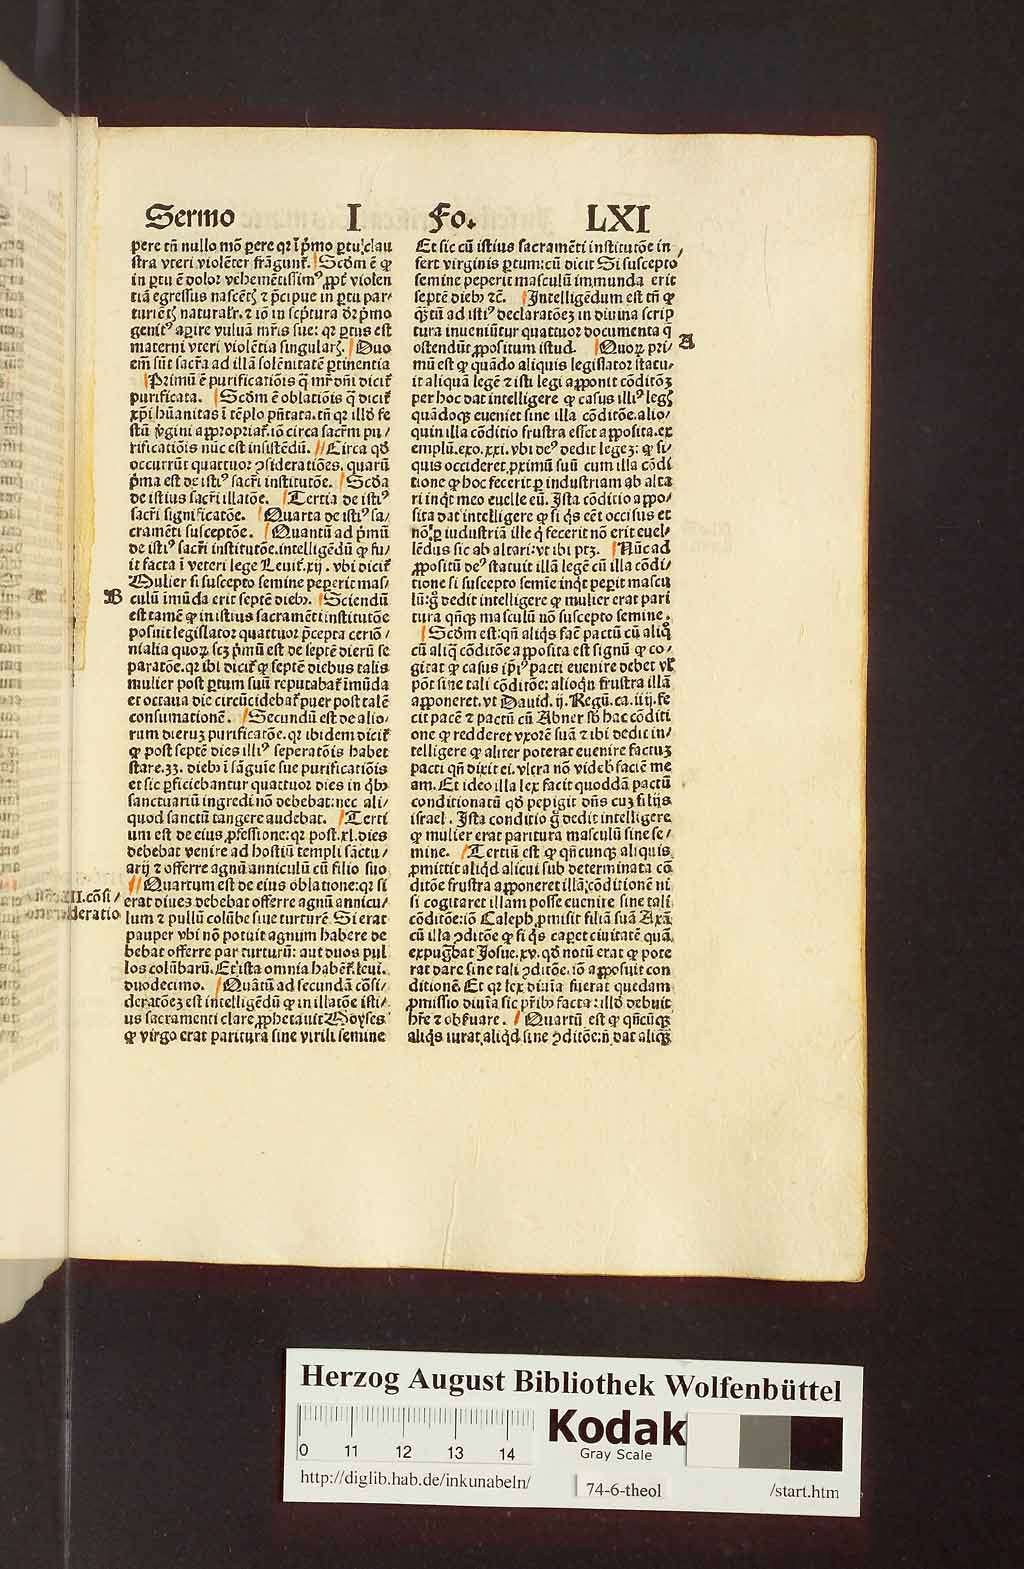 Sermo I Fo. LXI
pere tñ nullo mõ ꝑere qꝛ ĩ pͥmo ꝑtu clau
stra vteri violẽter frãgunt᷑. Scd̃m ẽ ꝙ
in ꝑtu ẽ dolor vehemẽtissimꝰ ꝓpt᷑ violen
tiã egressus nascẽtꝭ ⁊ p̃cipue in ꝑtu par⸗
turiẽtꝭ naturalr. ⁊ iõ in sep̃tura dr̃ pͥmo
genitꝰ aꝑire vuluã mr̃is sue: qꝛ ꝑtus est
materni vteri violẽtia singularꝭ. Duo
em̃ sũt sacr̃a ad illã solẽnitatẽ ꝑtinentia
Primũ ẽ purificatiõis q̃ mr̃ dñi dicit᷑
purificata. Scd̃m ẽ oblatiõis q̃ dicit᷑
xp̃i hũanitas ĩ tẽplo pñtata. tñ qꝛ illd̃ fe
stũ v̓gini appropriat᷑. iõ circa sacr̃m pu⸗
rificatiõis nũc est insistẽdũ. Circa qd̃
occurrũt quattuor ꝯsideratiões. quarũ
pͥma est de istiꝰ sacr̃i institutõe. Scd̃a
de istius sacr̃i illatõe. Tertia de istiꝰ
sacr̃i significatõe. Quarta de istiꝰ sa⸗
cramẽti susceptõe. Quantũ ad pͥmũ
de istiꝰ sacr̃i institutõe. intelligẽdũ ꝙ fu⸗
it facta ĩ veteri lege Leuit᷑. xij. vbi dicit᷑
Mulier si suscepto semine peperit mas⸗
B culũ ĩmũda erit septẽ dieb. Sciendũ
est tamẽ ꝙ in istius sacramẽti institutõe
posuit legislator quattuor p̃cepta cerió⸗
nialia quoꝝ. scꝫ pͥmũ est de septẽ dierũ se
paratõe. qꝛ ibi dicit᷑ ꝙ septẽ diebus talis
mulier post ꝑtum suũ reputabat᷑ ĩmũda
et octaua die circũcidebat᷑ puer post talẽ
consumationẽ. Secundũ est de alio⸗
rum dieruꝫ purificatõe. qꝛ ibidem dicit᷑
ꝙ post septẽ dies illiꝰ seperatõis habet
stare. 33. dieb ĩ sãguie sue purificatiõis
et sic ꝑficiebantur quattuor dies in qͥb
sanctuariũ ingredi nõ debebat: nec ali⸗
quod sanctũ tangere audebat. Terti
um est de eius ꝓfessione: qꝛ post. xl. dies
debebat venire ad hostiũ templi sãctu⸗
arij ⁊ offerre agnũ anniculũ cũ filio suo
Quartum est de eius oblatione: qꝛ si
XII. cõsi⸗
deratio
erat diues debebat offerre agnũ annicu⸗
lum ⁊ pullũ colũbe siue turturẽ. Si erat
pauper vbi nõ potuit agnum habere de
bebat offerre par turturũ: aut duos pul
los colũbarũ. Et ista omnia habẽt᷑. leui.
duodecimo. Quãtũ ad secundã cõsi⸗
deratõeꝫ est intelligẽdũ ꝙ in illatõe isti⸗
us sacramenti clare ꝓphetauit Moyses
ꝙ virgo erat paritura sine virili semine
Et sic cũ istius sacramẽti institutõe in⸗
sert virginis ꝑtum: cũ dicit Si suscepto
semine peperit masculũ immunda erit
septẽ dieb ⁊c̃. Intelligẽdum est tñ ꝙ
qꝫtũ ad istiꝰ declaratõeꝫ in diuina scrip
tura inueniũtur quattuor documenta q̃
ostendũt ꝓpositum istud. Quoꝝ pri⸗ A
mũ est ꝙ quãdo aliquis legislator statu⸗
it aliquã legẽ ⁊ isti legi apponit cõditõꝫ
per hoc dat intelligere ꝙ casus illiꝰ legꝭ
quãdoqꝫ eueniet sine illa cõditõe. alio⸗
quin illa cõditio frustra esset apposita. ex
emplũ. exo. xxi. vbi deꝰ dedit legeꝫ: ꝙ si⸗
quis occideret ꝓximũ suũ cum illa cõdi
tione ꝙ hoc fecerit ꝑ industriam ab alta
ri inqͥt meo euelle eũ. Ista cõditio appo⸗
sita dat intelligere ꝙ si qͥs eẽt occisus et
nõ ꝑ iudustriã ille qͥ fecerit nõ erit euel⸗
lẽdus sic ab altari: vt ibi ptꝫ. Nũc ad
ꝓpositũ deꝰ statuit illã legẽ cũ illa cõdi⸗
tione si suscepto semĩe inqͥt peꝑit mascu
lũ: g̃ dedit intelligere ꝙ mulier erat pari
tura qñqꝫ masculũ nõ suscepto semine.
Scd̃m est: qñ aliqͥs facͥ pactũ cũ aliq̃
cũ aliq̃ cõditõe apposita est signũ ꝙ co⸗
gitat ꝙ casus ip̃iꝰ pacti euenire debet vl̓
põt sine tali cõditõe: alioqñ frustra illã
apponeret. vt Dauid. ij. Regũ. ca. iij. fe
cit pacẽ ⁊ pactũ cũ Abner sb̓ hac cõditi
one ꝙ redderet vxorẽ suã ⁊ ibi dedit in⸗
telligere ꝙ aliter poterat euenire factuꝫ
pacti qñ dixit ei. vltra nõ videb faciẽ me
am. Et ideo illa lex facit quoddã pactũ
conditionatũ qd̃ pepigit dñs cuꝫ filijs
israel. Ista conditio g̃ dedit intelligere
ꝙ mulier erat paritura masculũ sine se⸗
mine. Tertiũ est ꝙ qñcunqꝫ aliquis
ꝓmittit aliqͥd alicui sub determinata cõ
ditõe frustra apponeret illã cõditionẽ ni
si cogitaret illam posse euenire sine tali
cõditõe: iõ Caleph ꝓmisit filiã suã Axã
cũ illa ꝯditõe ꝙ si qͥs caperet ciuitatẽ quã
expugͣbat Josue. xv. qd̃ notũ erat ꝙ pote
rat dare sine tali ꝯditõe. iõ apposuit con
ditionẽ. Et qꝛ lex diuina fuerat quedam
ꝓmissio diuĩa sic pr̃ib facta: illd̃ debuit
hr̃e ⁊ obẽuare. Quartũ est ꝙ qñcũqꝫ
aliqͥs iurat aliqͥd sine ꝯditõe: ñ dat aliqꝫ
Herzog August Bibliothek Wolfenbüttel
0 11 12 13 14
Kodak
Gray Scale
http://diglib.hab.de/inkunabeln/ 74-6-theol /start.htm